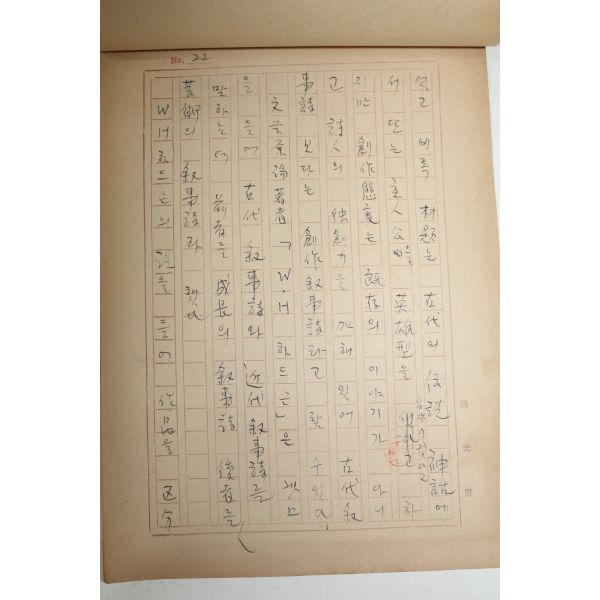 No. 22
비록 材題는 古代의 伝説 神話에
서 또는 主人公을 英雄型을 하
지만 創作態度는 既存의 이야기가 아니
고 詩人의 独創力을 加해 있어 古代叙
事詩 보다는 創作叙事詩라고 할 수 있다
文学原論著者 「W·H 하드슨」은
을 들어 古代 叙事詩와 近代 叙事詩를
말하는데 前者를 成長의 叙事詩 後者를
芸術의 叙事詩라 했다
W H 하드슨의 説을 들어 作品을 区分